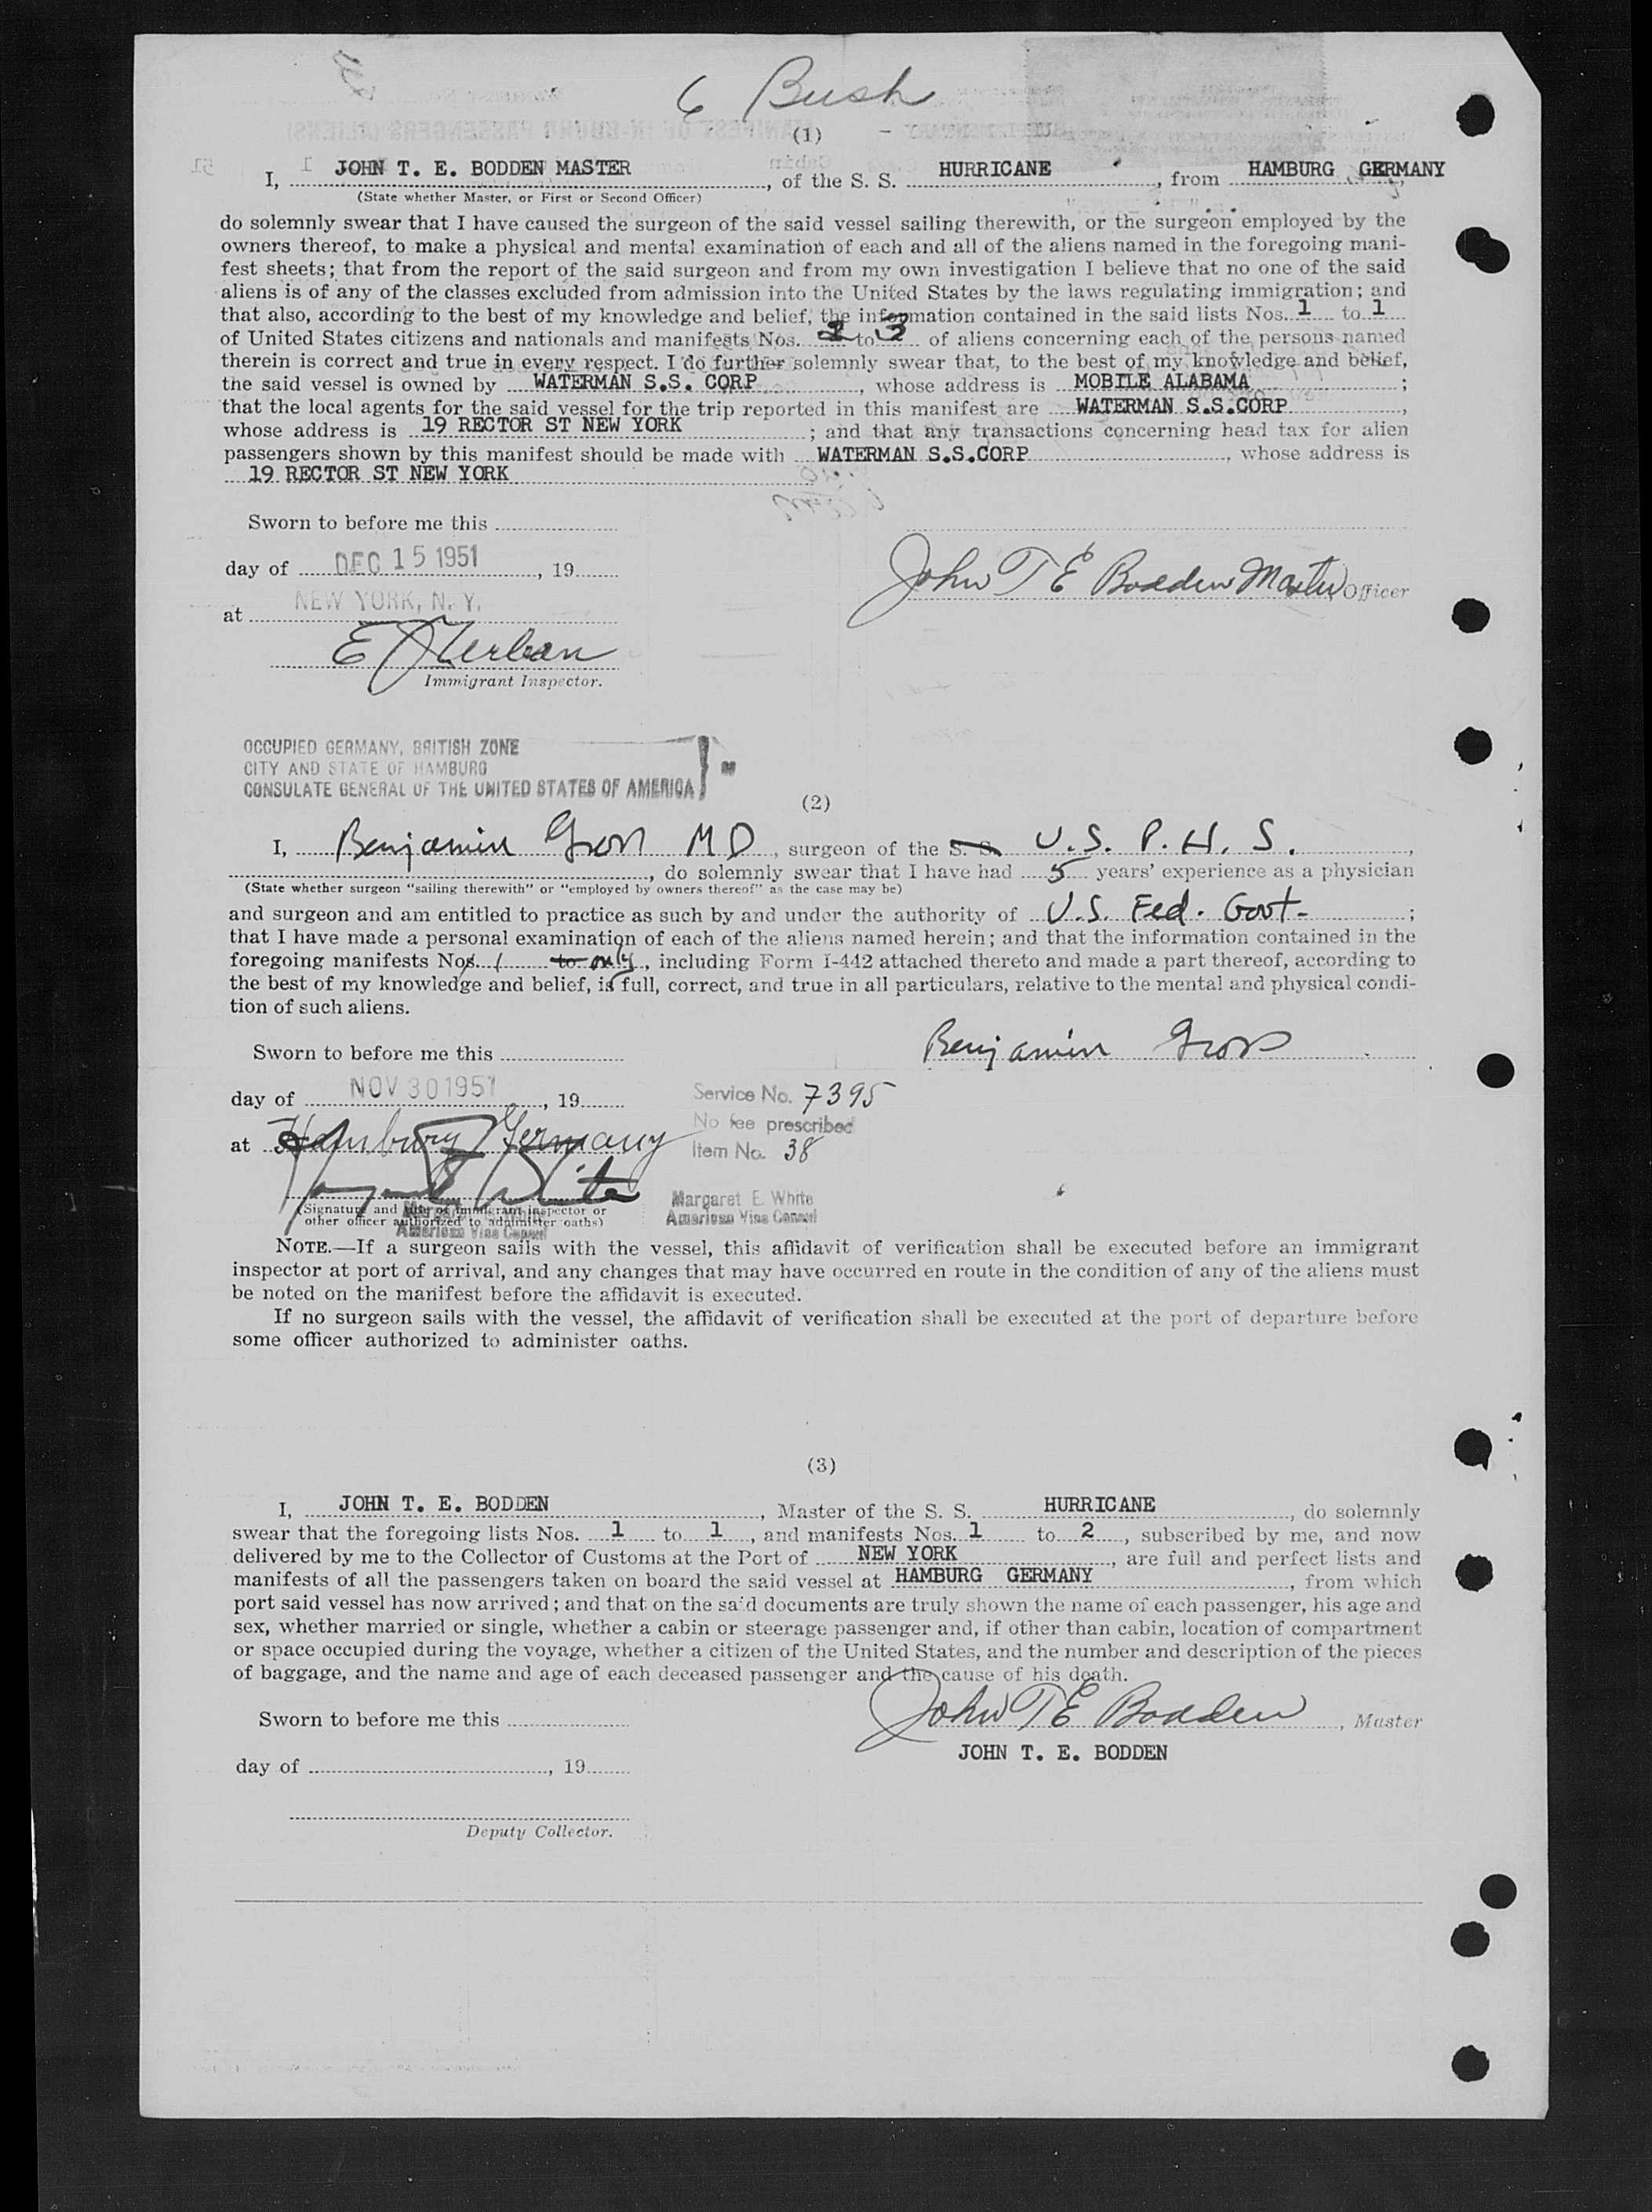 6 Bush
(1)
I, JOHN T. E. BODDEN MASTER, of the S. S. HURRICANE, from HAMBURG GERMANY
(State whether Master, or First or Second Officer)
do solemnly swear that I have caused the surgeon of the said vessel sailing therewith, or the surgeon employed by the
owners thereof, to make a physical and mental examination of each and all of the aliens named in the foregoing mani-
fest sheets; that from the report of the said surgeon and from my own investigation I believe that no one of the said
aliens is of any of the classes excluded from admission into the United States by the laws regulating immigration; and
that also, according to the best of my knowledge and belief, the information contained in the said lists Nos. 1 to 1
of United States citizens and nationals and manifests Nos. 2 to 3 of aliens concerning each of the persons named
therein is correct and true in every respect. I do further solemnly swear that, to the best of my knowledge and belief,
the said vessel is owned by WATERMAN S.S. CORP, whose address is MOBILE ALABAMA;
that the local agents for the said vessel for the trip reported in this manifest are WATERMAN S.S.CORP,
whose address is 19 RECTOR ST NEW YORK; and that any transactions concerning head tax for alien
passengers shown by this manifest should be made with WATERMAN S.S.CORP, whose address is
19 RECTOR ST NEW YORK
Sworn to before me this
day of DEC 15 1951, 19
John T E Bodden Master Officer
at NEW YORK, N. Y.
Immigrant Inspector.
OCCUPIED GERMANY, BRITISH ZONE
CITY AND STATE OF HAMBURG
CONSULATE GENERAL OF THE UNITED STATES OF AMERICA
(2)
I, Benjamin Gross MD, surgeon of the S. S. U.S. P. H. S.,
, do solemnly swear that I have had 5 years' experience as a physician
(State whether surgeon "sailing therewith" or "employed by owners thereof" as the case may be)
and surgeon and am entitled to practice as such by and under the authority of U.S. Fed. Govt.;
that I have made a personal examination of each of the aliens named herein; and that the information contained in the
foregoing manifests Nos. 1 to only, including Form I-442 attached thereto and made a part thereof, according to
the best of my knowledge and belief, is full, correct, and true in all particulars, relative to the mental and physical condi-
tion of such aliens.
Benjamin Gross
Sworn to before me this
day of NOV 30 1951, 19
Service No. 7395
No fee prescribed
at Hamburg Germany
Item No. 38
Margaret E. White
American Vice Consul
(Signature and title of immigrant inspector or
other officer authorized to administer oaths)
American Vice Consul
NOTE.—If a surgeon sails with the vessel, this affidavit of verification shall be executed before an immigrant
inspector at port of arrival, and any changes that may have occurred en route in the condition of any of the aliens must
be noted on the manifest before the affidavit is executed.
If no surgeon sails with the vessel, the affidavit of verification shall be executed at the port of departure before
some officer authorized to administer oaths.
(3)
I, JOHN T. E. BODDEN, Master of the S. S. HURRICANE, do solemnly
swear that the foregoing lists Nos. 1 to 1, and manifests Nos. 1 to 2, subscribed by me, and now
delivered by me to the Collector of Customs at the Port of NEW YORK, are full and perfect lists and
manifests of all the passengers taken on board the said vessel at HAMBURG GERMANY, from which
port said vessel has now arrived; and that on the said documents are truly shown the name of each passenger, his age and
sex, whether married or single, whether a cabin or steerage passenger and, if other than cabin, location of compartment
or space occupied during the voyage, whether a citizen of the United States, and the number and description of the pieces
of baggage, and the name and age of each deceased passenger and the cause of his death.
John T E Bodden, Master
Sworn to before me this
JOHN T. E. BODDEN
day of , 19
Deputy Collector.